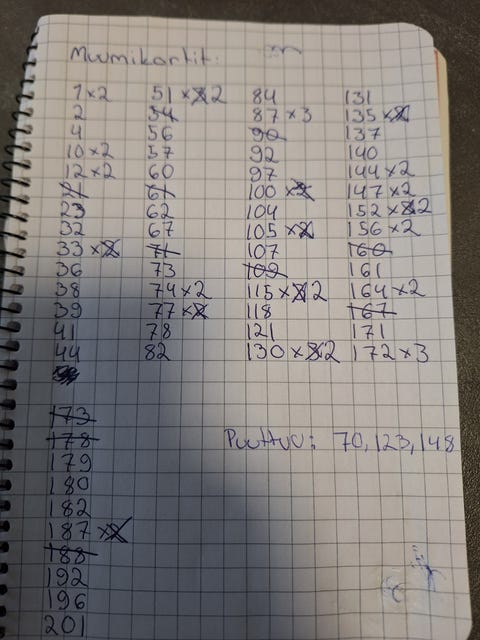 Muumikortit:
1 x2
2
4
10 x2
12 x2
21
23
32
33 x2
36
38
39
41
44
51 x3 2
54
56
57
60
61
62
67
71
73
74 x2
77 x2
78
82
84
87 x3
90
92
97
100 x2
104
105 x2
107
109
115 x3 2
118
121
130 x3 2
131
135 x2
137
140
144 x2
147 x2
152 x3 2
156 x2
160
161
164 x2
167
171
172 x3
173
178
179
180
182
187 x2
188
192
196
201
Puuttuu: 70, 123, 148